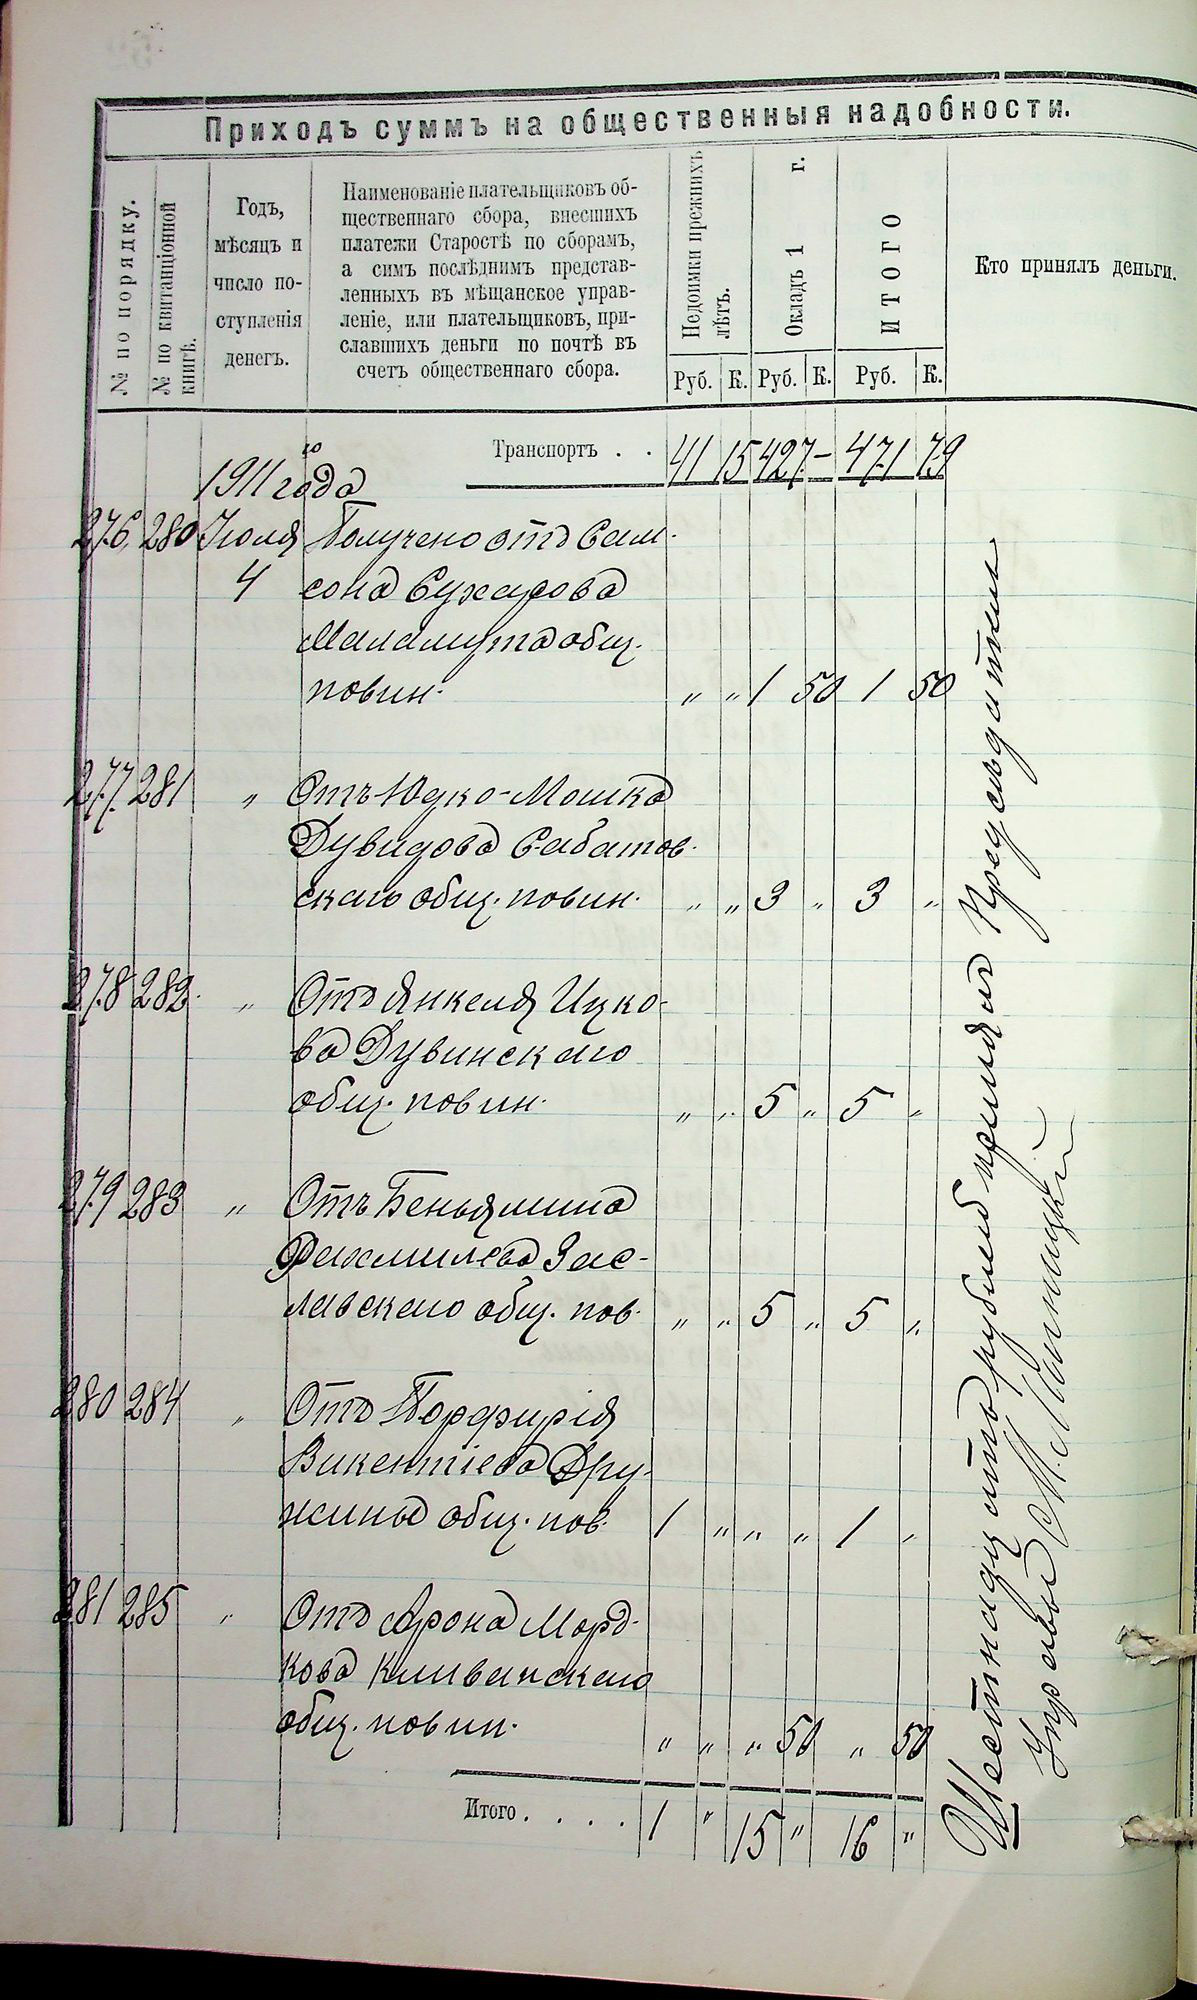 Приходъ суммъ на общественныя надобности.
№ по порядку.
№ по квитанціонной
книгѣ.
Годъ,
мѣсяцъ и
число по-
ступленія
денегъ.
Наименованіе плательщиковъ об-
щественнаго сбора, внесшихъ
платежи Старостѣ по сборамъ,
а симъ послѣднимъ представ-
ленныхъ въ мѣщанское управ-
леніе, или плательщиковъ, при-
славшихъ деньги по почтѣ въ
счетъ общественнаго сбора.
Недоимки прежнихъ
лѣтъ.
Окладъ 1 г.
ИТОГО
Кто принялъ деньги.
Руб. К. Руб. К. Руб. К.
Транспортъ . . 41 15 427 – 471 79
1911 года
276 280 Іюля Получено отъ Сам-
4 сона Сухарова
Маламута общ.
повин. „ „ 1 50 1 50
277 281 „ Отъ Юдко-Мошка
Дувидова Сабатов-
скаго общ. повин. „ „ 3 „ 3 „
278 282 „ Отъ Янкеля Ицко-
ва Дувинскаго
общ. повин. „ „ 5 „ 5 „
279 283 „ Отъ Беньямина
Рахмилева Зас-
лавскаго общ. пов. „ „ 5 „ 5 „
280 284 „ Отъ Порфирія
Викентіева Дру-
жины общ. пов. 1 „ „ „ 1 „
281 285 „ Отъ Арона Морд-
кова Клива‌нскаго
общ. повин. „ „ „ 50 „ 50
Итого . . . . 1 „ 15 „ 16 „
Шестнадцать рублей принялъ Предсѣдатель
Управы М.